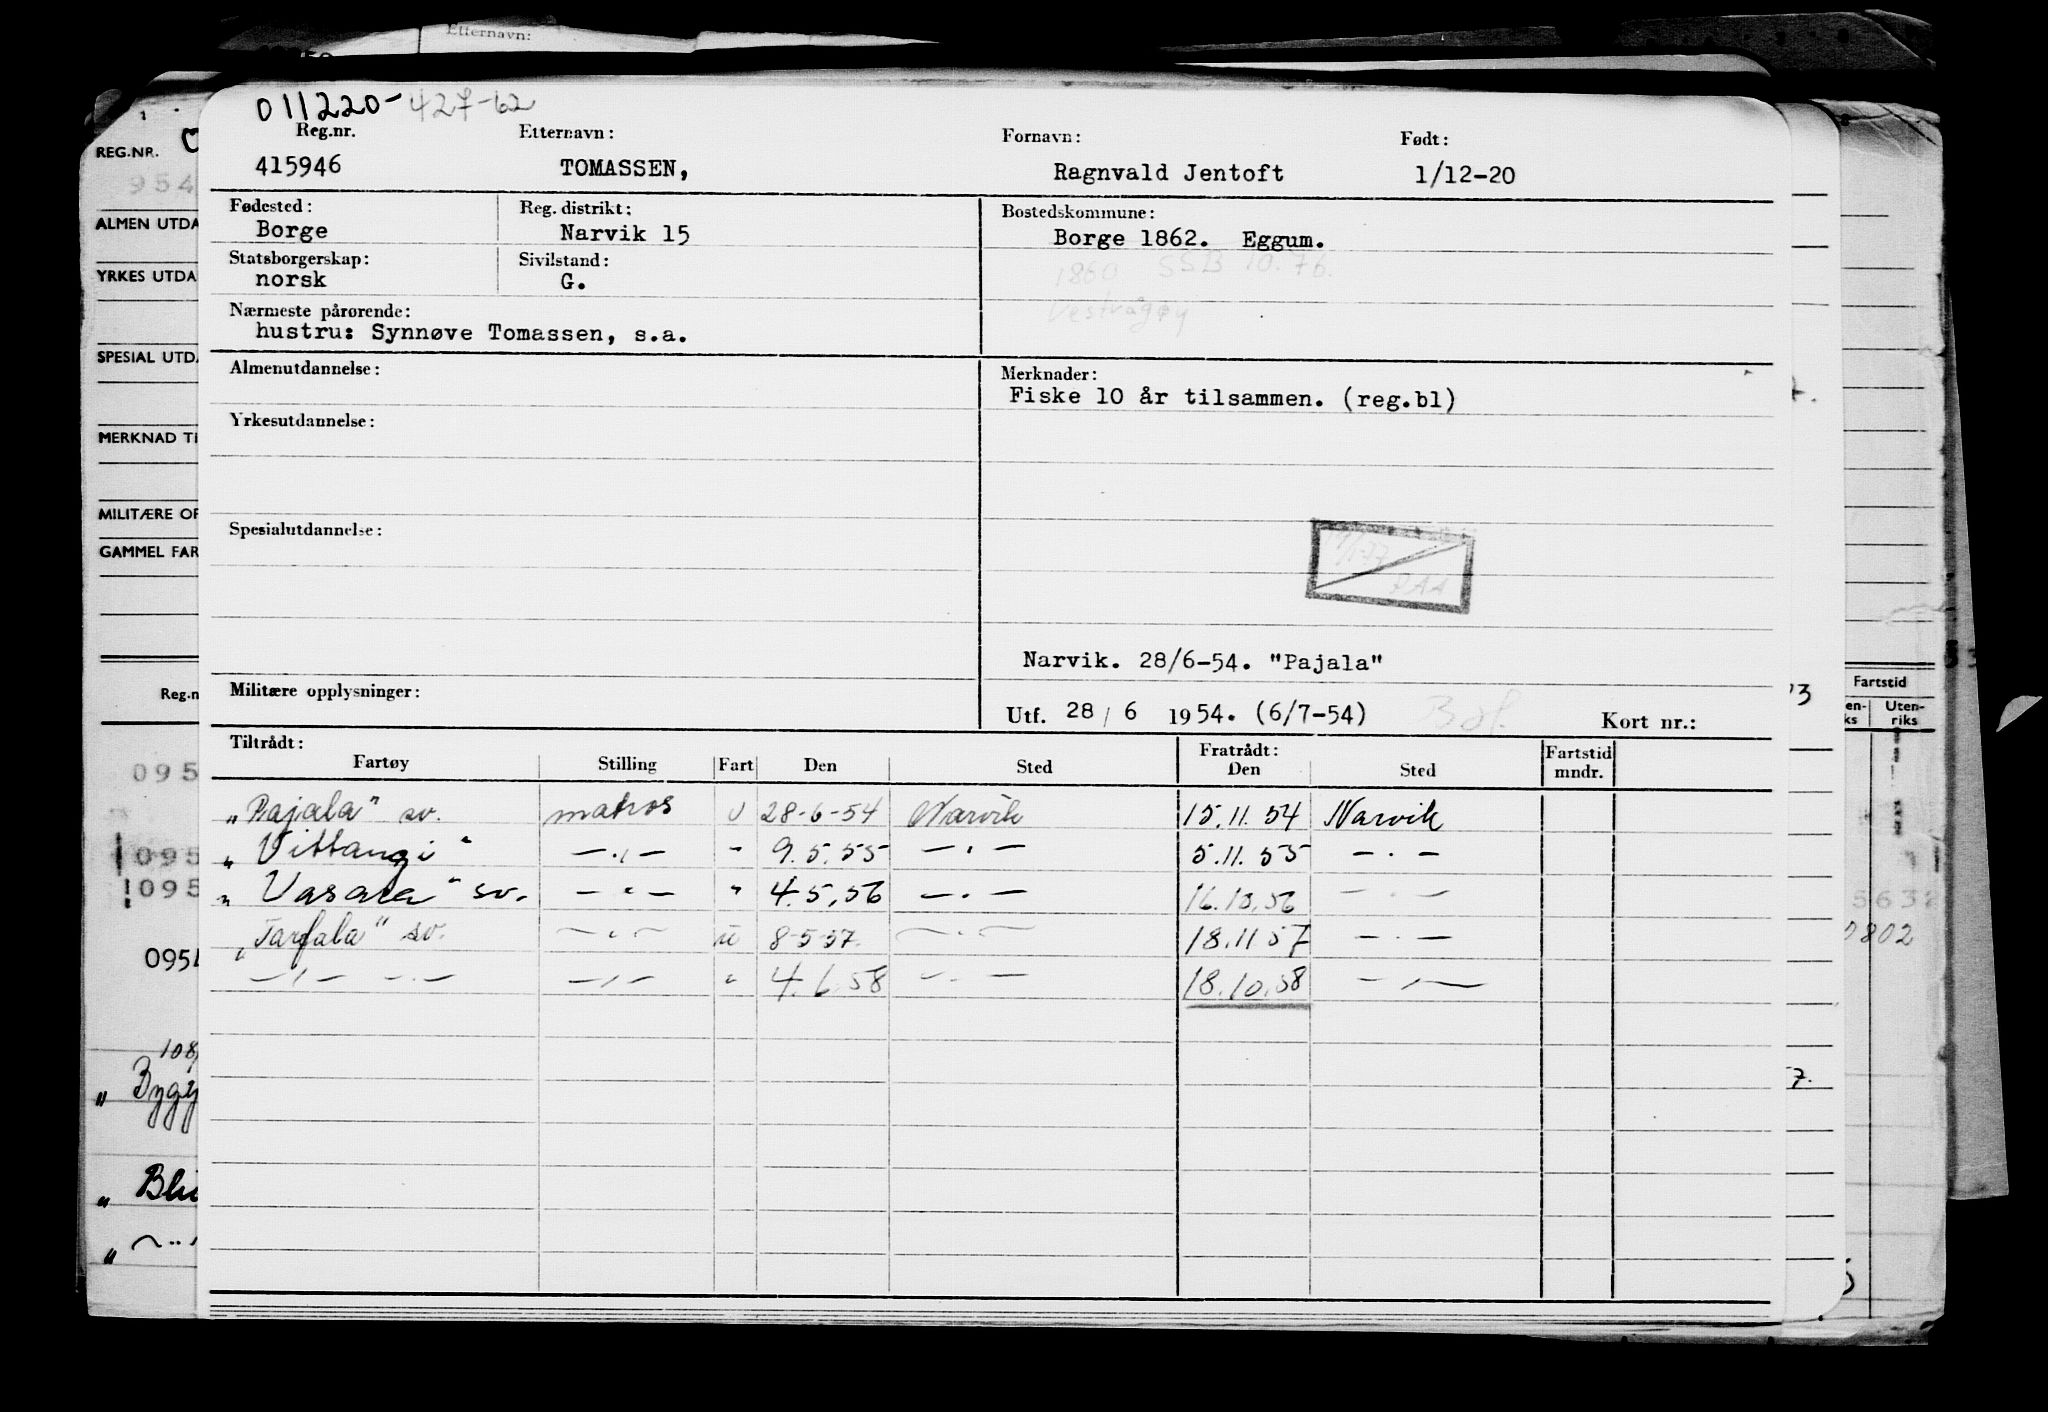 Etternavn:
011220-427-62
Reg.nr. Etternavn: Fornavn: Født:
415946 TOMASSEN, Ragnvald Jentoft 1/12-20
Fødested: Reg. distrikt: Bostedskommune:
Borge Narvik 15 Borge 1862. Eggum.
Statsborgerskap: Sivilstand: 1860 SSB 10.76.
norsk G. Vestvågøy
Nærmeste pårørende:
hustru: Synnøve Tomassen, s.a.
Almenutdannelse: Merknader:
Fiske 10 år tilsammen. (reg.bl)
Yrkesutdannelse:
Spesialutdannelse:
Narvik. 28/6-54. "Pajala"
Militære opplysninger:
Utf. 28/6 1954. (6/7-54) Kort nr.:
Tiltrådt: Fratrådt: Fartstid
Fartøy Stilling Fart Den Sted Den Sted mndr.
"Pajala" sv. matros U 28-6-54 Narvik 15.11.54 Narvik
"Vittangi" —„— " 9.5.55 —„— 5.11.55 —„—
"Vasara" sv. —„— " 4.5.56 —„— 16.10.56 —„—
"Tarfala" sv. —„— u 8-5-57. —„— 18.11 57 —„—
—„— —„— —„— " 4.6.58 —„— 18.10.58 —„—
REG.NR.
954
ALMEN UTDA
YRKES UTDA
SPESIAL UTDA
MERKNAD TI
MILITÆRE OP
GAMMEL FAR
Reg.n
095
095
095
095
108
" Bygg
" Bli
Fartstid
en-ks Uten-riks
5632
0802